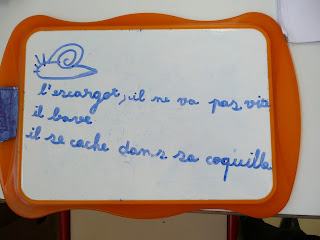 l'escargot, il ne va pas vite
il bave
il se cache dans sa coquille